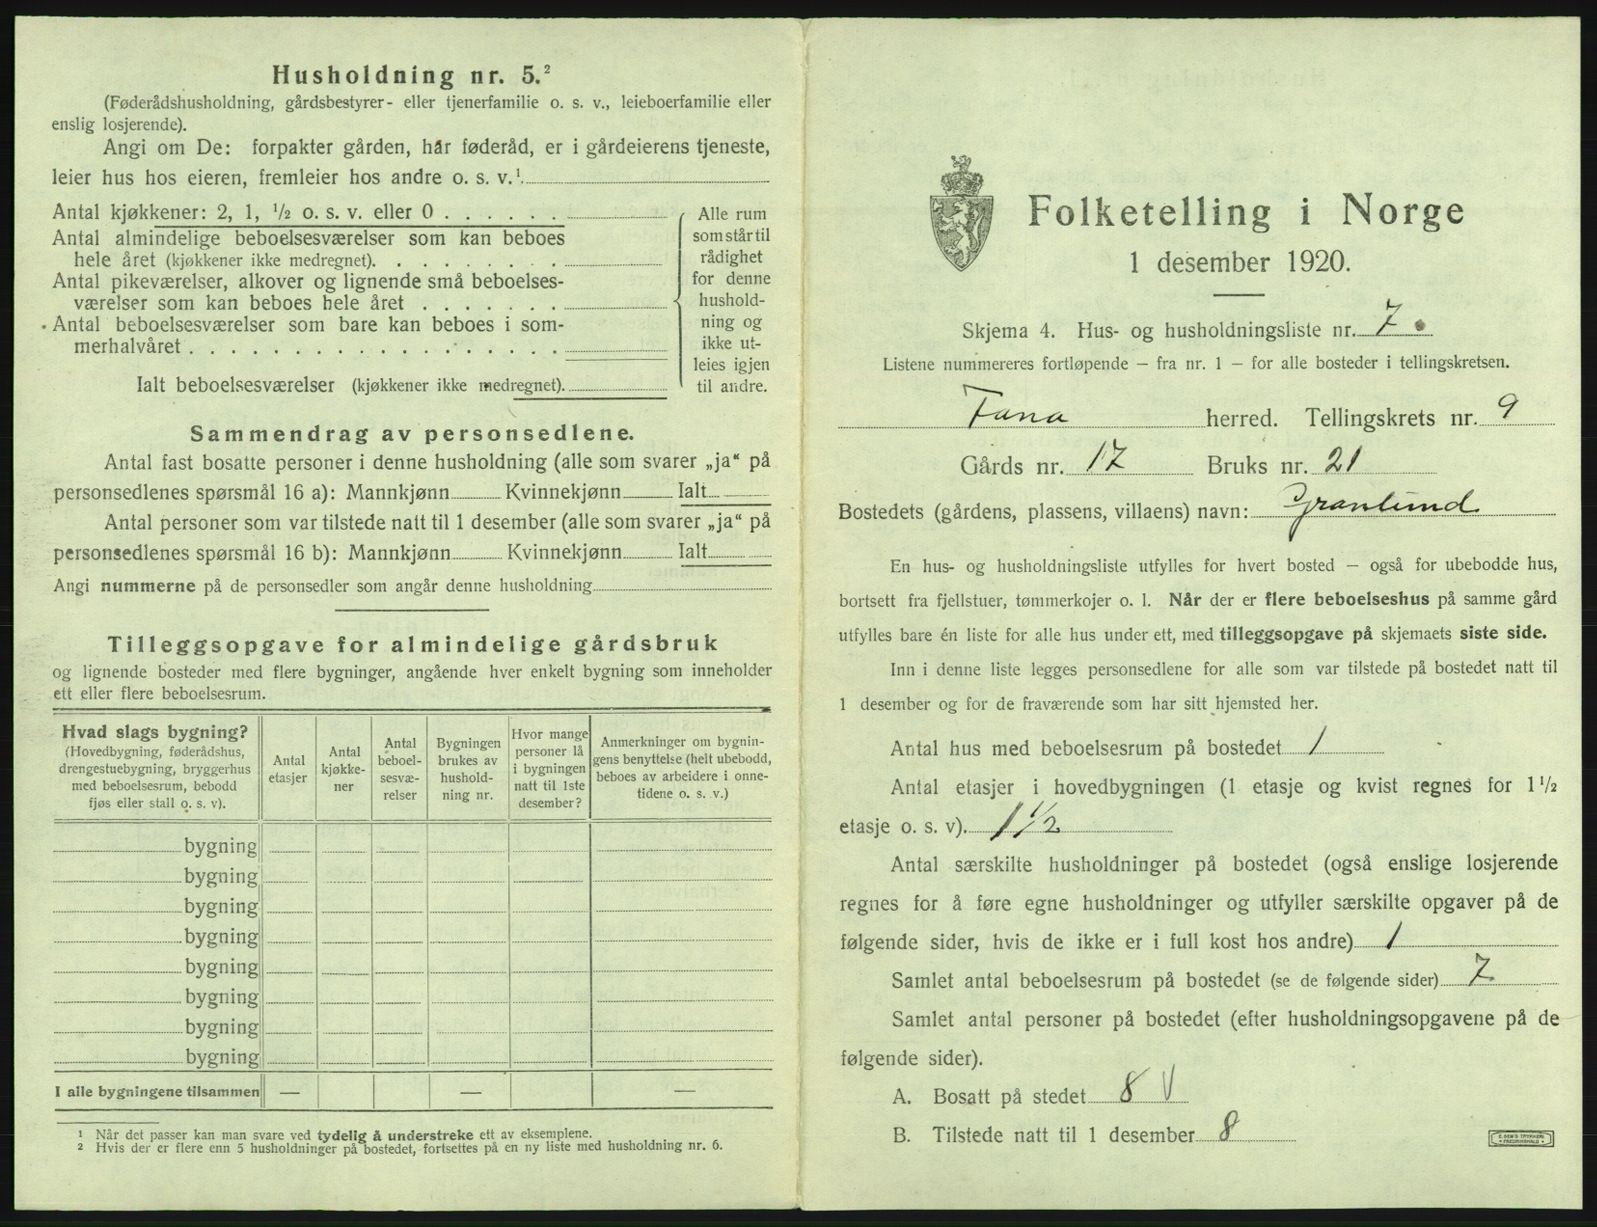 Husholdning nr. 5.²
(Føderådshusholdning, gårdsbestyrer- eller tjenerfamilie o. s. v., leieboerfamilie eller
enslig losjerende).
Angi om De: forpakter gården, har føderåd, er i gårdeierens tjeneste,
leier hus hos eieren, fremleier hos andre o. s. v.¹
Antal kjøkkener: 2, 1, ½ o. s. v. eller 0 . . . . . .
Antal almindelige beboelsesværelser som kan beboes
hele året (kjøkkener ikke medregnet). . . . . . . . .
Antal pikeværelser, alkover og lignende små beboelses-
værelser som kan beboes hele året . . . . . . .
Antal beboelsesværelser som bare kan beboes i som-
merhalvåret . . . . . . . . . . . . . . . . . .
Ialt beboelsesværelser (kjøkkener ikke medregnet).
Alle rum
som står til
rådighet
for denne
hushold-
ning og
ikke ut-
leies igjen
til andre.
Sammendrag av personsedlene.
Antal fast bosatte personer i denne husholdning (alle som svarer „ja“ på
personsedlenes spørsmål 16 a): Mannkjønn Kvinnekjønn Ialt
Antal personer som var tilstede natt til 1 desember (alle som svarer „ja“ på
personsedlenes spørsmål 16 b): Mannkjønn Kvinnekjønn Ialt
Angi nummerne på de personsedler som angår denne husholdning
Tilleggsopgave for almindelige gårdsbruk
og lignende bosteder med flere bygninger, angående hver enkelt bygning som inneholder
ett eller flere beboelsesrum.
Hvad slags bygning?
(Hovedbygning, føderådshus,
drengestuebygning, bryggerhus
med beboelsesrum, bebodd
fjøs eller stall o. s. v).
Antal
etasjer
Antal
kjøkke-
ner
Antal
beboel-
sesvæ-
relser
Bygningen
brukes av
hushold-
ning nr.
Hvor mange
personer lå
i bygningen
natt til 1ste
desember?
Anmerkninger om bygnin-
gens benyttelse (helt ubebodd,
beboes av arbeidere i onne-
tidene o. s. v.)
bygning
bygning
bygning
bygning
bygning
bygning
bygning
bygning
I alle bygningene tilsammen — — —
¹ Når det passer kan man svare ved tydelig å understreke ett av eksemplene.
² Hvis der er flere enn 5 husholdninger på bostedet, fortsettes på en ny liste med husholdning nr. 6.
Folketelling i Norge
1 desember 1920.
Skjema 4. Hus- og husholdningsliste nr. 7
Listene nummereres fortløpende — fra nr. 1 — for alle bosteder i tellingskretsen.
Fana herred. Tellingskrets nr. 9
Gårds nr. 17 Bruks nr. 21
Bostedets (gårdens, plassens, villaens) navn: Granlund
En hus- og husholdningsliste utfylles for hvert bosted — også for ubebodde hus,
bortsett fra fjellstuer, tømmerkojer o. l. Når der er flere beboelseshus på samme gård
utfylles bare én liste for alle hus under ett, med tilleggsopgave på skjemaets siste side.
Inn i denne liste legges personsedlene for alle som var tilstede på bostedet natt til
1 desember og for de fraværende som har sitt hjemsted her.
Antal hus med beboelsesrum på bostedet 1
Antal etasjer i hovedbygningen (1 etasje og kvist regnes for 1½
etasje o. s. v). 1 ½
Antal særskilte husholdninger på bostedet (også enslige losjerende
regnes for å føre egne husholdninger og utfyller særskilte opgaver på de
følgende sider, hvis de ikke er i full kost hos andre) 1
Samlet antal beboelsesrum på bostedet (se de følgende sider) 7
Samlet antal personer på bostedet (efter husholdningsopgavene på de
følgende sider).
A. Bosatt på stedet 8 V
B. Tilstede natt til 1 desember 8